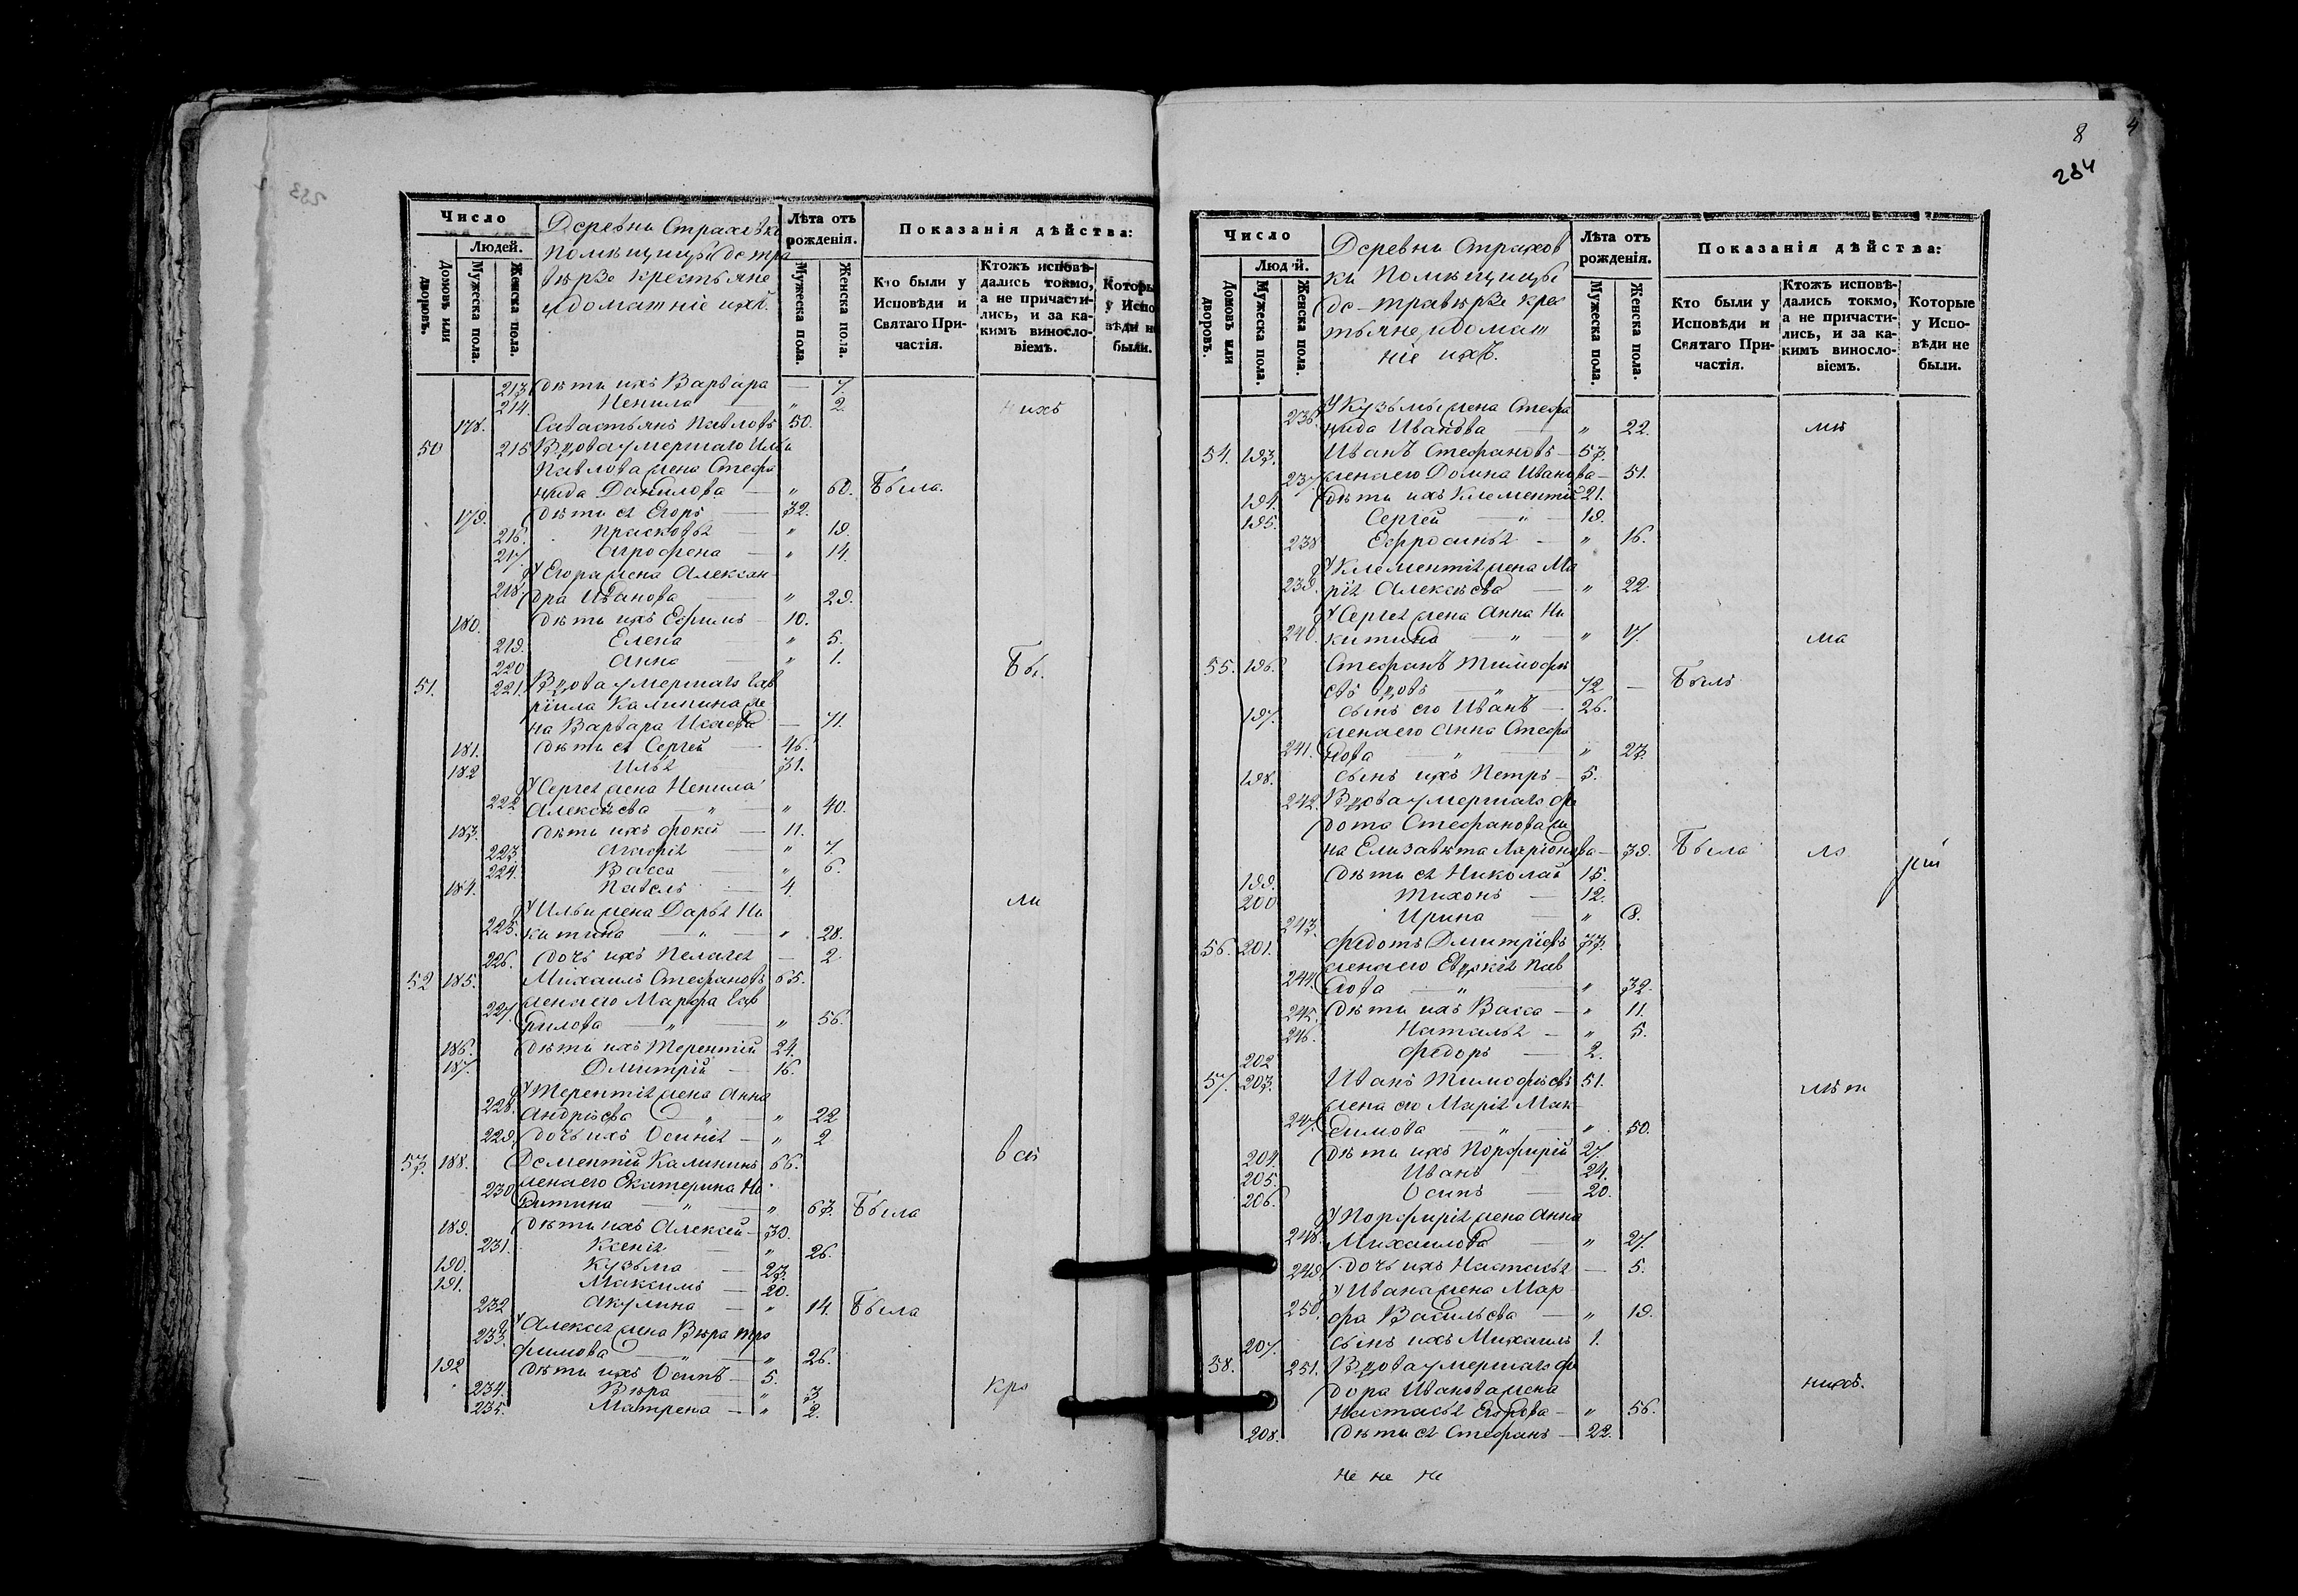 Число
Людей.
Домовъ или дворовъ.
Мужеска пола.
Женска пола.
Деревни Страховки
помѣщицы де тра
вѣрзе крестьяне
и домашніе ихъ.
Лѣта отъ рожденія.
Мужеска пола.
Женска пола.
Показанія дѣйства:
Кто были у Исповѣди и Святаго Причастія.
Ктожъ исповѣдались токмо, а не причастились, и за какимъ винословіемъ.
Которы у Испо вѣди н были.
213. дѣти ихъ Варвара — 7.
214. Ненила " 2. нихъ
178. Савастьянъ Павловъ 50.
50 215 Вдова умершаго Ильи
Павлова жена Стефа
нида Данилова — " 60. Была.
179. дѣти ея Егоръ — 32.
216. Прасковья — " 19.
217. Агрофена — " 14.
У Егора жена Алексан-
218. дра Иванова — " 29.
180. дѣти ихъ Ефимъ 10.
219. Елена " 5.
220 Анна " 1. Бы.
51. 221. Вдова умершаго Гав
ріила Калинина же
на Варвара Исаева — 71.
181. дѣти ея Сергей — 46.
182 Илья 31.
У Сергея жена Ненила
222. Алексѣева — " — " 40.
183. дѣти ихъ Фокей — 11.
223. Агафія — " 7.
224. Васса — " 6.
184. Павелъ — 4. ли
У Ильи жена Дарья Ни
225. китина — " — " 28.
226. дочь ихъ Пелагея — 2
52 185. Михаилъ Стефановъ 65.
жена его Марфа Гав
227. рилова — " — " 56.
186. дѣти ихъ Терентій 24.
187. Дмитрій — 16.
У Терентія жена Анна
228. Андрѣева — " — " 22
229. дочь ихъ Осинія — " 2
53. 188. Дементій Калининъ 66. всѣ
жена его Екатерина Ни
230 китина — " — " 63. Была
189. дѣти ихъ Алексѣй — 30.
231. Ксенія — " 26.
190. Кузьма — 23.
191. Максимъ — 20.
232 Акулина — " 14. Была
У Алексея жена Вѣра Тро
233. фимова — " — " 26.
192 дѣти ихъ Осипъ — 5.
234. Вѣра — " 3. кро
235. Матрена — " 2.
8
284
Число
Людей.
Домовъ или дворовъ.
Мужеска пола.
Женска пола.
Деревни Страхов
ки Помѣщицы
де-травѣрзе крес
тьяне и домаш
ніе ихъ.
Лѣта отъ рожденія.
Мужеска пола.
Женска пола.
Показанія дѣйства:
Кто были у Исповѣди и Святаго Причастія.
Ктожъ исповѣдались токмо, а не причастились, и за какимъ винословіемъ.
Которые у Исповѣди не были.
У Кузьмы жена Стефа
236. нида Иванова — " 22. мѣ
54. 193. Иванъ Стефановъ — 53.
237. жена его Домна Иванова — 51.
194. дѣти ихъ Клементій 21.
195. Сергей — " — 19.
238 Ефросинья — " 16.
У Клементія жена Ма
239. рія Алексѣева — " 22
У Сергея жена Анна Ни
240. китина — " — " 17. ма
55. 196. Стефанъ Тимофѣ
евъ вдовъ — " — 72 — Былъ
197. сынъ его Иванъ — 26.
жена его Анна Стефа
241. нова — " — " 23.
198. сынъ ихъ Петръ — 5.
242. Вдова умершаго Фе
дота Стефанова же
на Елизавета Ларіонова — 39. Была ло рій
199. дѣти ея Николай 15.
200 Тихонъ — 12.
243. Ирина — " 8.
56. 201. Федотъ Дмитріевъ 33.
жена его Евдокія Пав
244. лова — " — " 32.
245. дѣти ихъ Васса — " 11.
246. Наталья — " 5.
202 Федоръ — 2.
57. 203. Иванъ Тимофѣевъ 51. лѣт
жена его Марія Мак-
247. симова — " — " 50.
204. дѣти ихъ Порфирій 27.
205. Иванъ — 24.
206. Осипъ — 20.
У Порфирія жена Анна
248. Михаилова — " 27.
249. дочь ихъ Настасья — 5.
У Ивана жена Мар
250. фа Васильева — " 19.
207. сынъ ихъ Михаилъ 1.
58. 251. Вдова умершаго Фе
дора Иванова жена нихъ.
Настасья Егорова — " 56.
208. дѣти ея Стефанъ — 22.
не не не